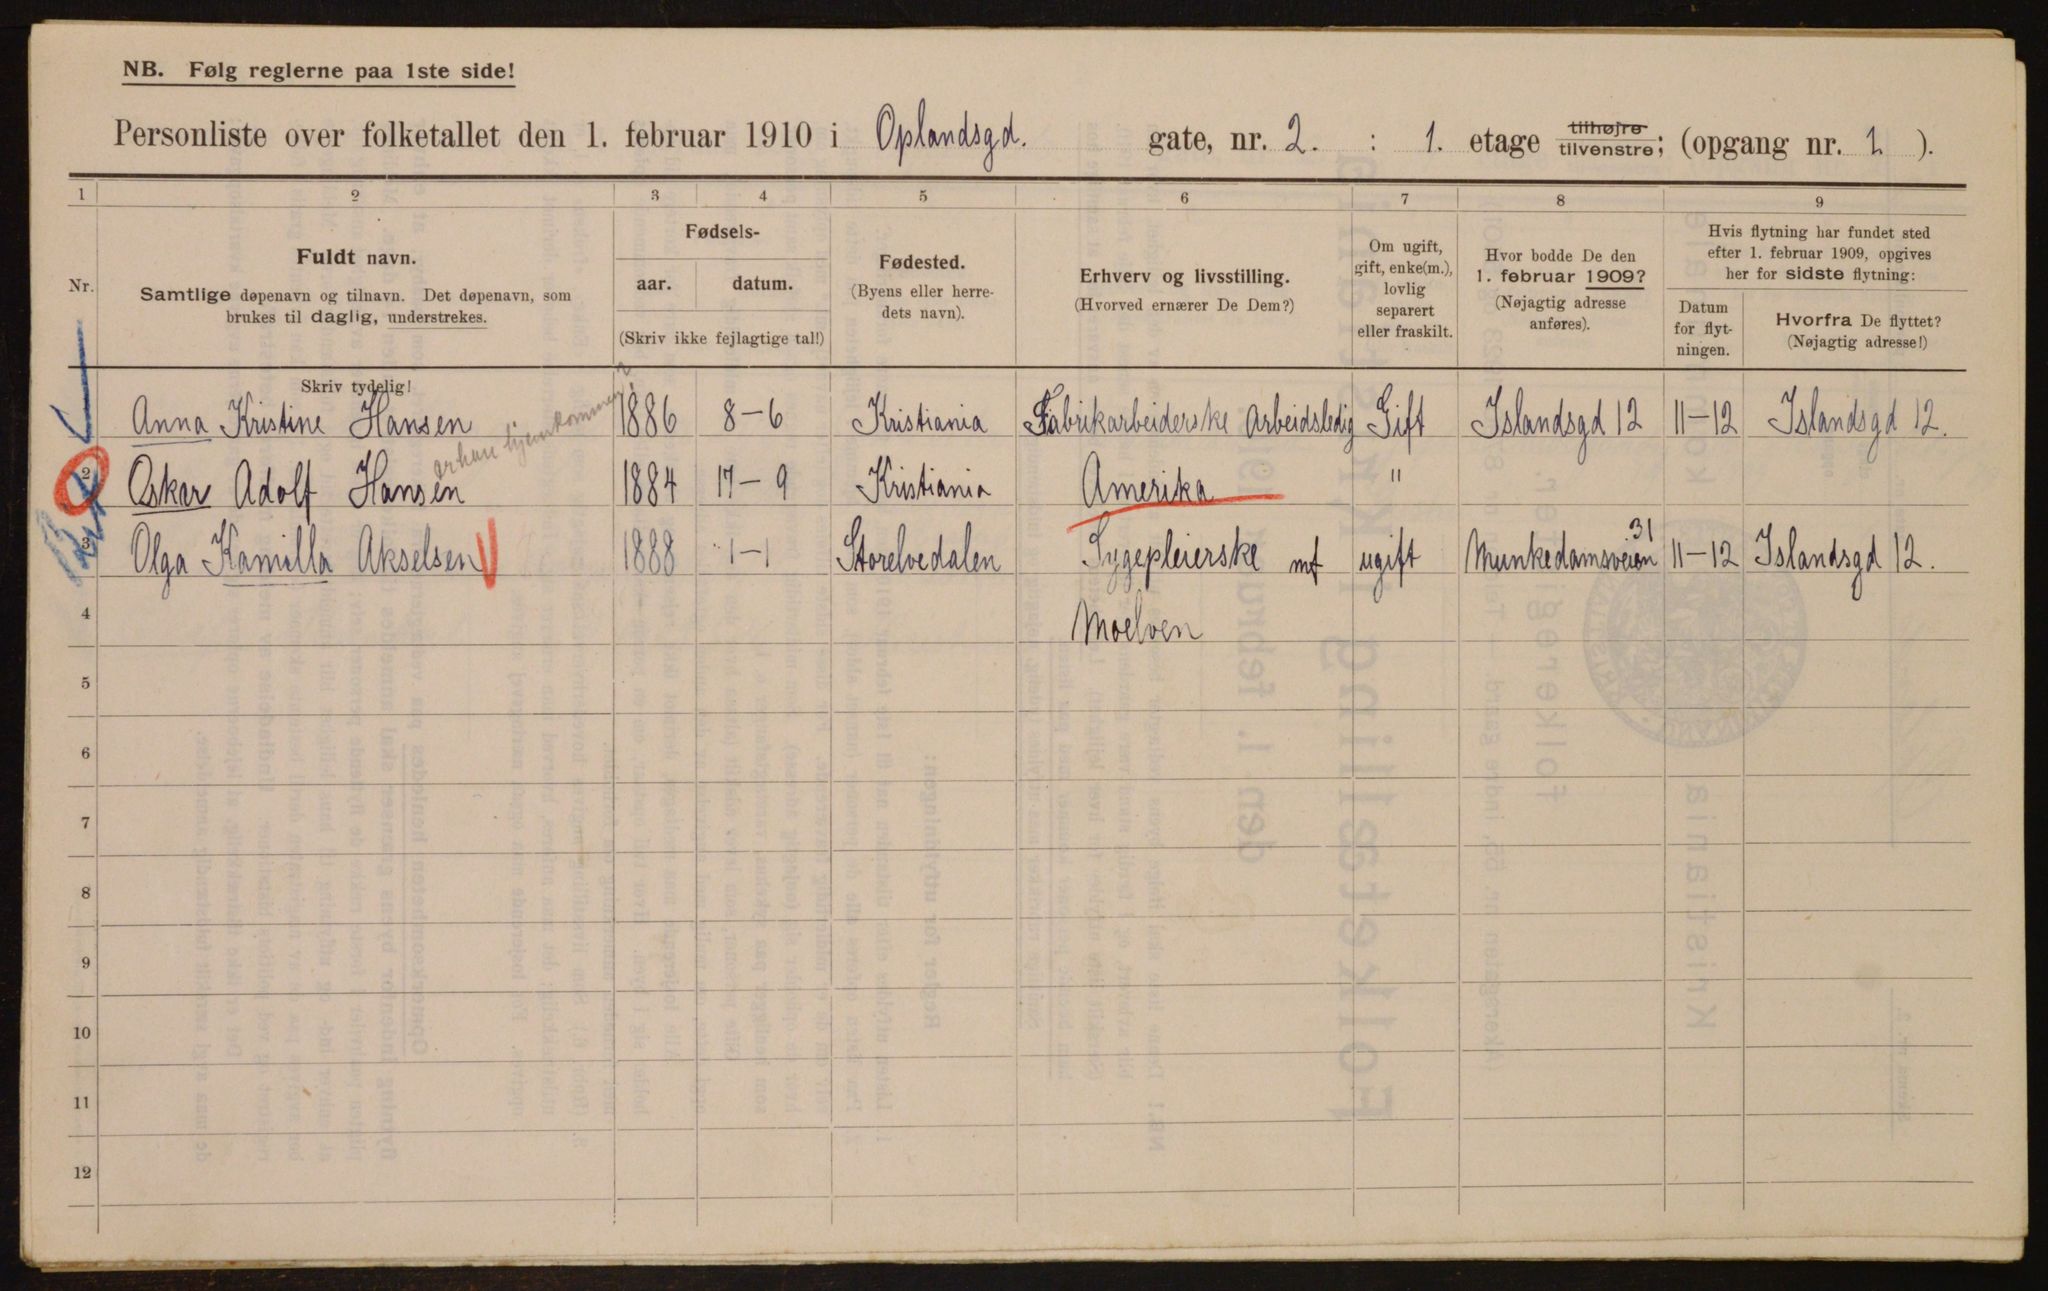 NB. Følg reglerne paa 1ste side!
Personliste over folketallet den 1. februar 1910 i Oplandsgd. gate, nr. 2. : 1. etage tilhøjre tilvenstre; (opgang nr. 1 ).
1 2 3 4 5 6 7 8 9
Nr.
Fuldt navn.
Samtlige døpenavn og tilnavn. Det døpenavn, som
brukes til daglig, understrekes.
Skriv tydelig!
Fødsels-
aar. datum.
(Skriv ikke fejlagtige tal!)
Fødested.
(Byens eller herre-
dets navn).
Erhverv og livsstilling.
(Hvorved ernærer De Dem?)
Om ugift,
gift, enke(m.),
lovlig
separert
eller fraskilt.
Hvor bodde De den
1. februar 1909?
(Nøjagtig adresse
anføres).
Hvis flytning har fundet sted
efter 1. februar 1909, opgives
her for sidste flytning:
Datum
for flyt-
ningen.
Hvorfra De flyttet?
(Nøjagtig adresse!)
Anna Kristine Hansen 1886 8-6 Kristiania Fabrikarbeiderske Arbeidsledig Gift Islandsgd 12 11-12 Islandsgd 12.
2 Oskar Adolf Hansen 1884 17-9 Kristiania Amerika "
3 Olga Kamilla Akselsen 1888 1-1 Storelvedalen Sygepleierske mf ugift Munkedamsveien 31 11-12 Islandsgd 12.
4 Moelven
5
6
7
8
9
10
11
12